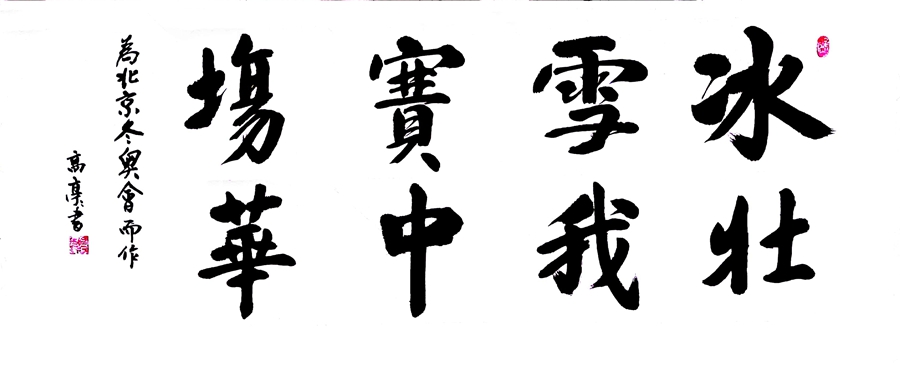 冰雪賽場
壮我中華
為北京冬奧會而作
高書